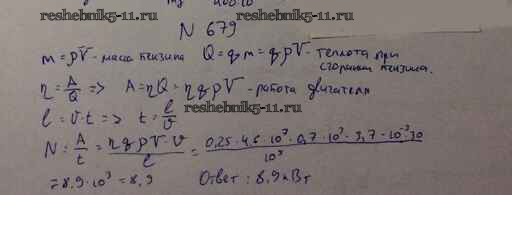 reshebnik5-11.ru reshebnik5-11.ru
N 679
m = ρV - масса бензина Q = qm = qρV - теплота при
сгорании бензина.
η = A/Q => A = ηQ = ηqρV - работа двигателя
reshebnik5-11.ru
l = v·t => t = l/v
N = A/t = ηqρV·v/l = 0,25·4,6·10⁷·0,7·10³·3,7·10⁻³·10/10⁵
= 8,9·10³ = 8,9 Ответ: 8,9 кВт